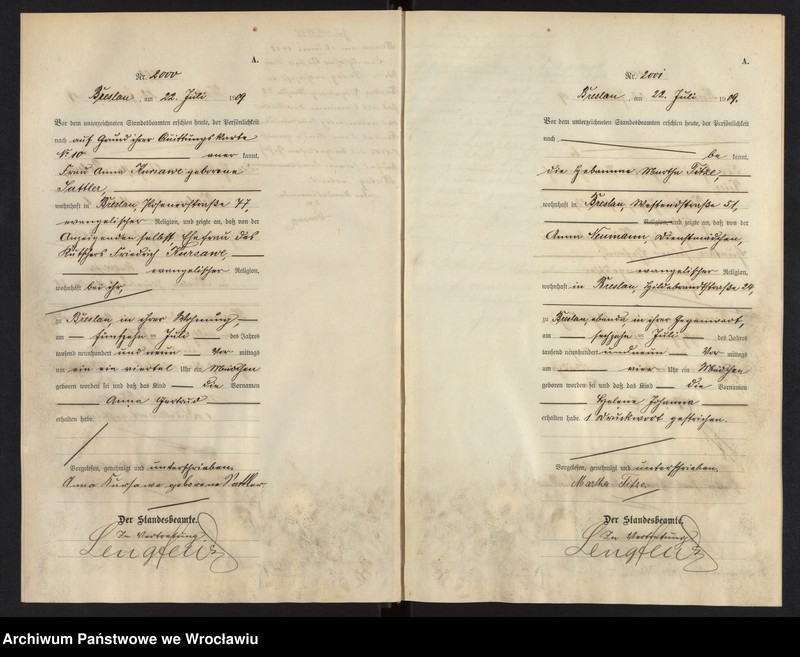 A.
Nr. 2000
Breslan, am 22. Juli 1909
Vor dem unterzeichneten Standesbeamten erschien heute, der Persönlichkeit
nach auf Grund ihrer Quittungskarte
No 10 aner kannt,
Frau Anna Kursawe geborene
Sattler,
wohnhaft in Breslau, Posenerstraße 77,
evangelischer Religion, und zeigte an, daß von der
Anzeigenden selbst, Ehefrau des
Kutschers Friedrich Kursawe,
evangelischer Religion,
wohnhaft bei ihr,
zu Breslau, in ihrer Wohnung,
am fünfzehn = Juli des Jahres
tausend neunhundert und neun Vor mittags
um ein ein viertel Uhr ein Mädchen
geboren worden sei und daß das Kind die Vornamen
Anna Gertrud
erhalten habe.
Vorgelesen, genehmigt und unterschrieben.
Anna Kursawe geborene Sattler.
Der Standesbeamte.
In Vertretung
A.
Nr. 2001
Breslau, am 22. Juli 1909.
Vor dem unterzeichneten Standesbeamten erschien heute, der Persönlichkeit
nach
be kannt,
die Hebamme Martha Titze,
wohnhaft in Breslau, Westendstraße 51,
Religion, und zeigte an, daß von der
Anna Neumann, Dienstmädchen,
evangelischer Religion,
wohnhaft in Breslau, Hildebrandtstraße 24,
zu Breslau, ebenda, in ihrer Gegenwart,
am sechzehn = Juli des Jahres
tausend neunhundert und neun Vor mittags
um vier Uhr ein Mädchen
geboren worden sei und daß das Kind die Vornamen
Helene Johanna
erhalten habe. 1 Druckwort gestrichen.
Vorgelesen, genehmigt und unterschrieben.
Martha Titze.
Der Standesbeamte.
In Vertretung
Archiwum Państwowe we Wrocławiu